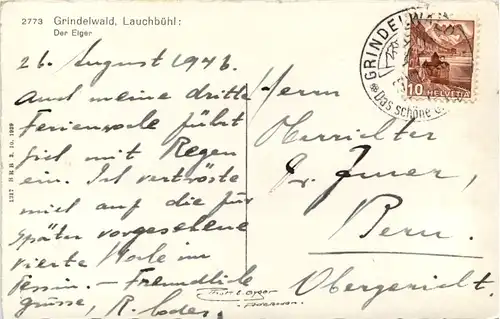 2773 Grindelwald, Lauchbühl:
Der Eiger
26. August 1943.
Auch meine dritte
Ferienwoche führt
sich mit Regen
ein. Ich vertröste
mich auf die für
später vorgesehene
vierte Woche im
Tessin. – Freundliche
Grüsse,
Herrn
Oberrichter
Dr.
Bern.
Obergericht.
GRINDELWALD
Das schöne
10 HELVETIA
1317 10. 1939